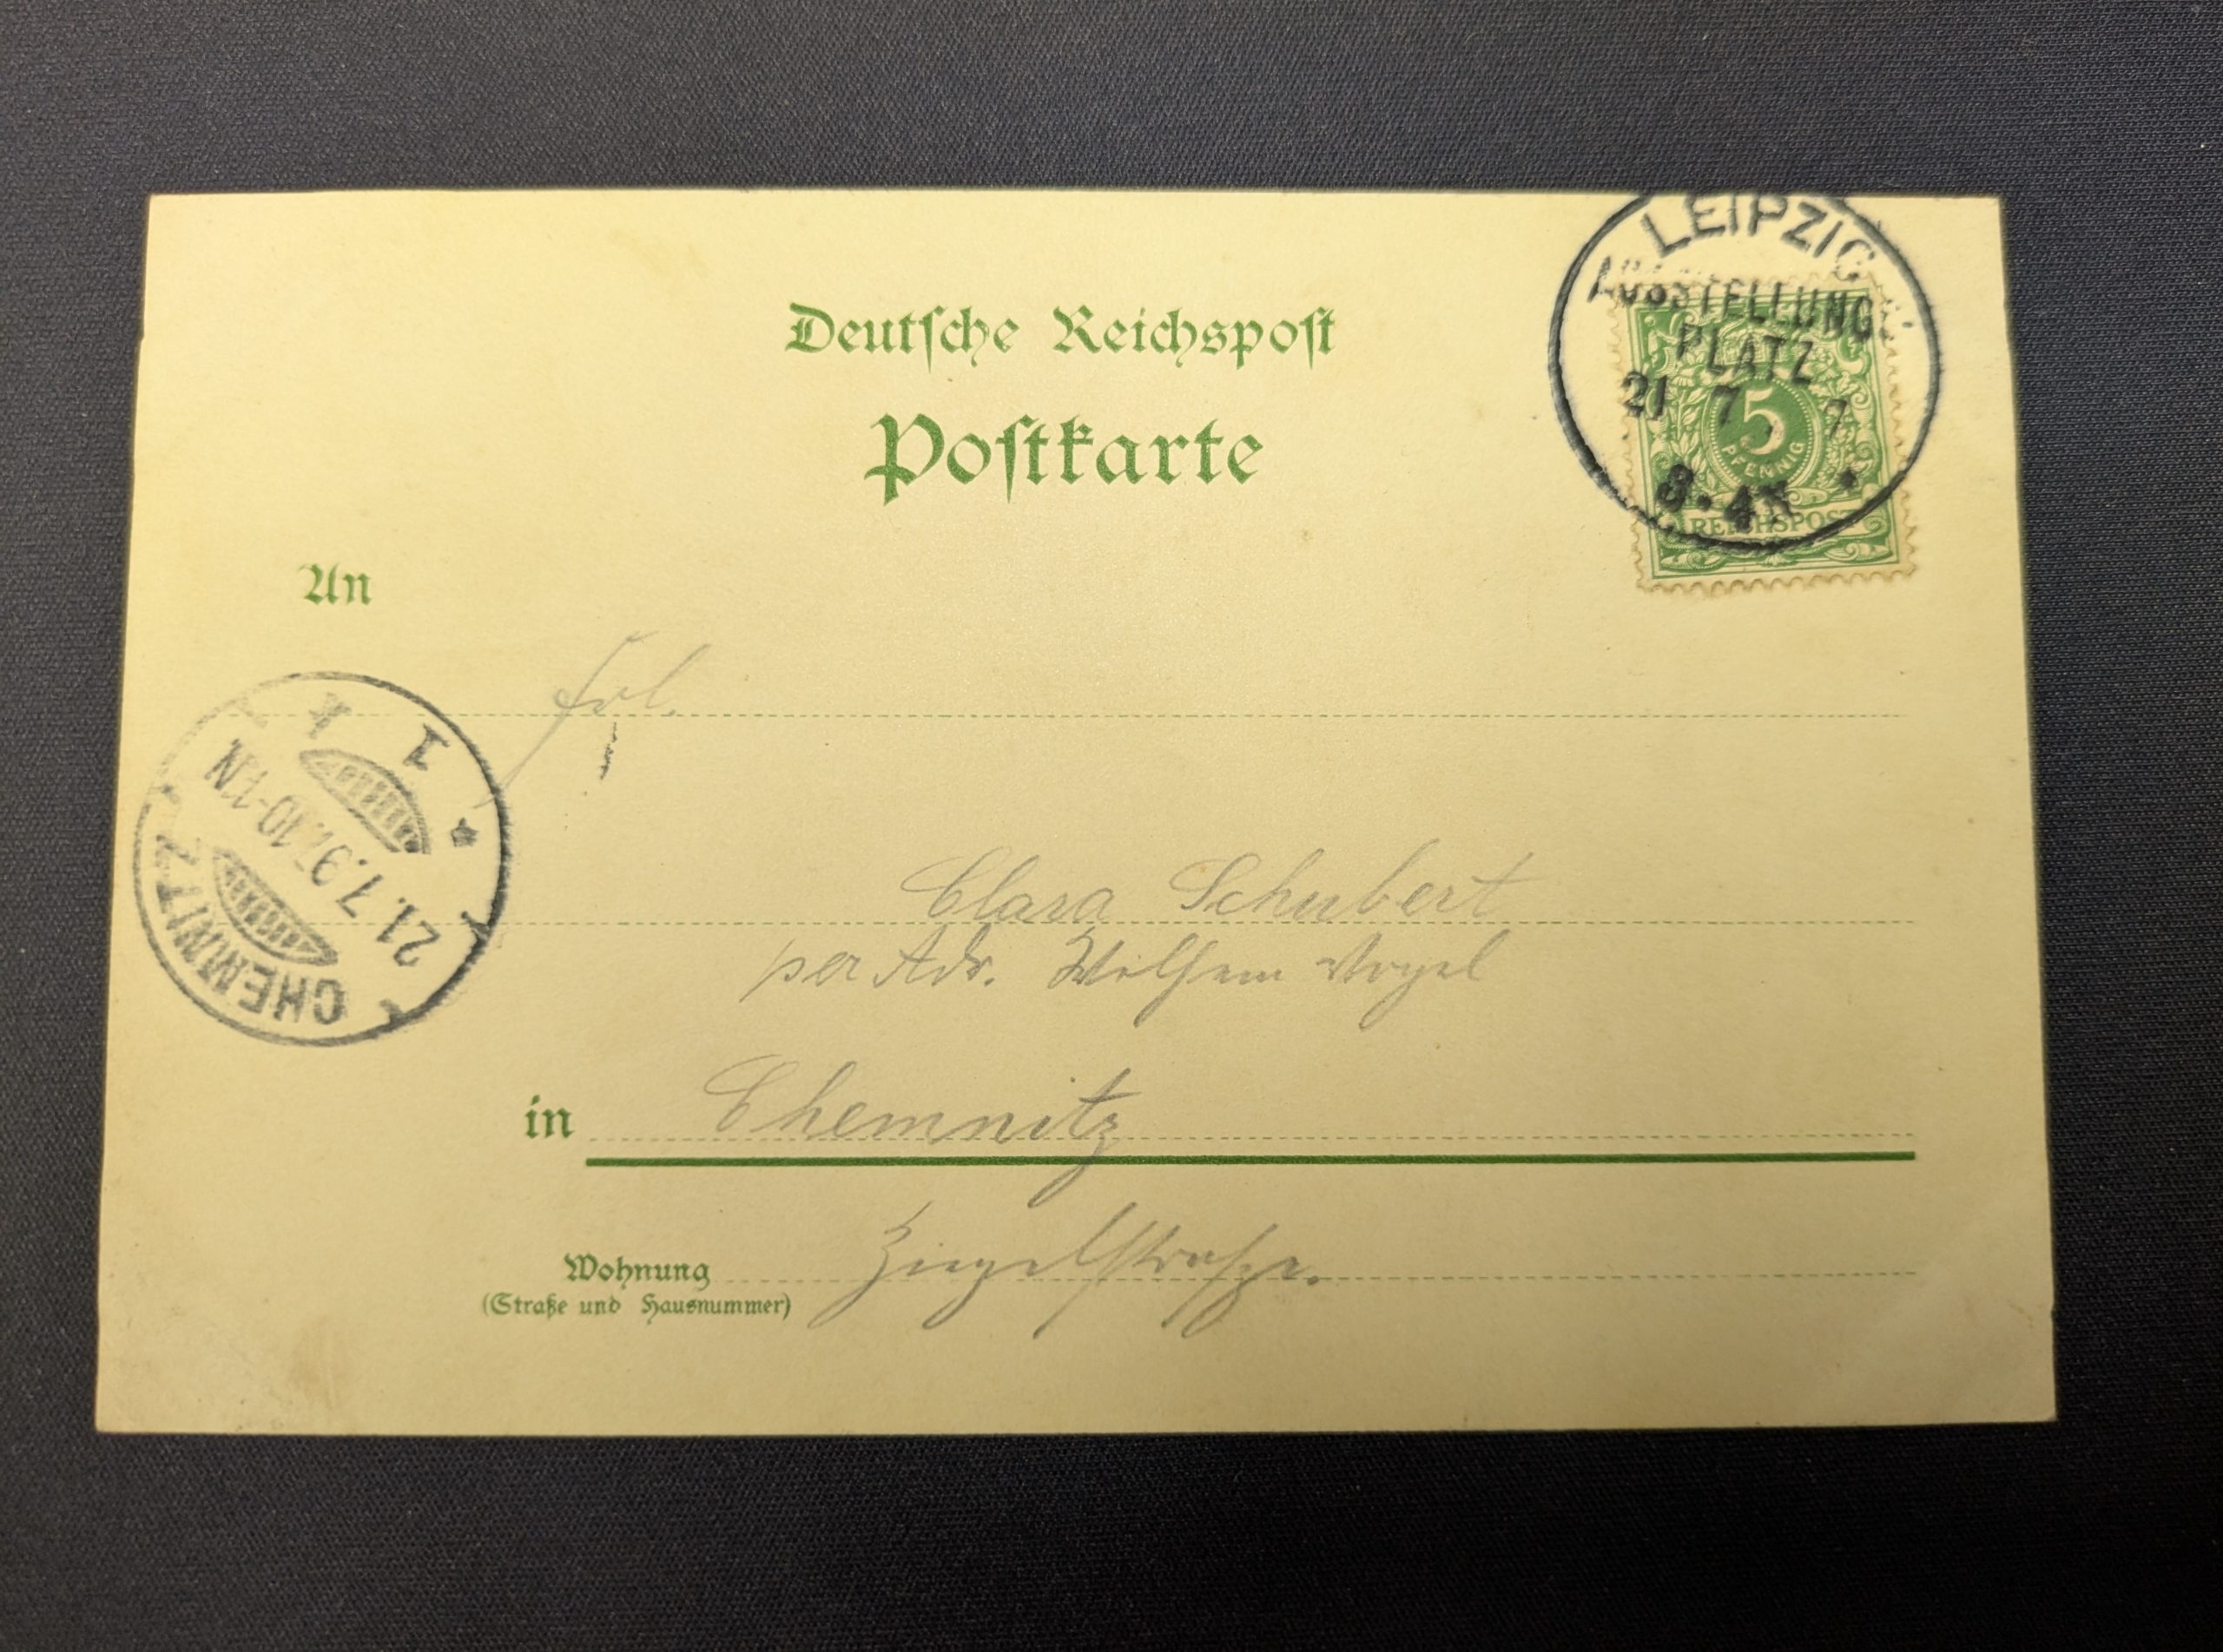 Deutsche Reichspost
Postkarte
LEIPZIG
AUSSTELLUNGS
PLATZ
21 7 7
3-4N
5
PFENNIG
REICHSPOST
An
Frl.
CHEMNITZ
21.7.97.10-11N
1
Clara Schubert
per Adr. Wilhelm Vogel
in Chemnitz
Wohnung Ziegelstraße.
(Straße und Hausnummer)